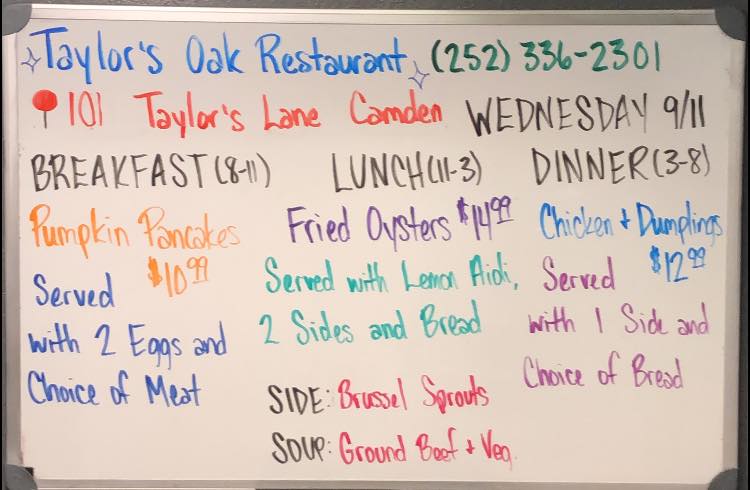 Taylor's Oak Restaurant (252) 336-2301
101 Taylor's Lane Camden WEDNESDAY 9/11
BREAKFAST (8-11) LUNCH (11-3) DINNER (3-8)
Pumpkin Pancakes
$10.99
Served
with 2 Eggs and
Choice of Meat
Fried Oysters $14.99
Served with Lemon Aioli,
2 Sides and Bread
SIDE: Brussel Sprouts
SOUP: Ground Beef + Veg.
Chicken + Dumplings
$12.99
Served
with 1 Side and
Choice of Bread